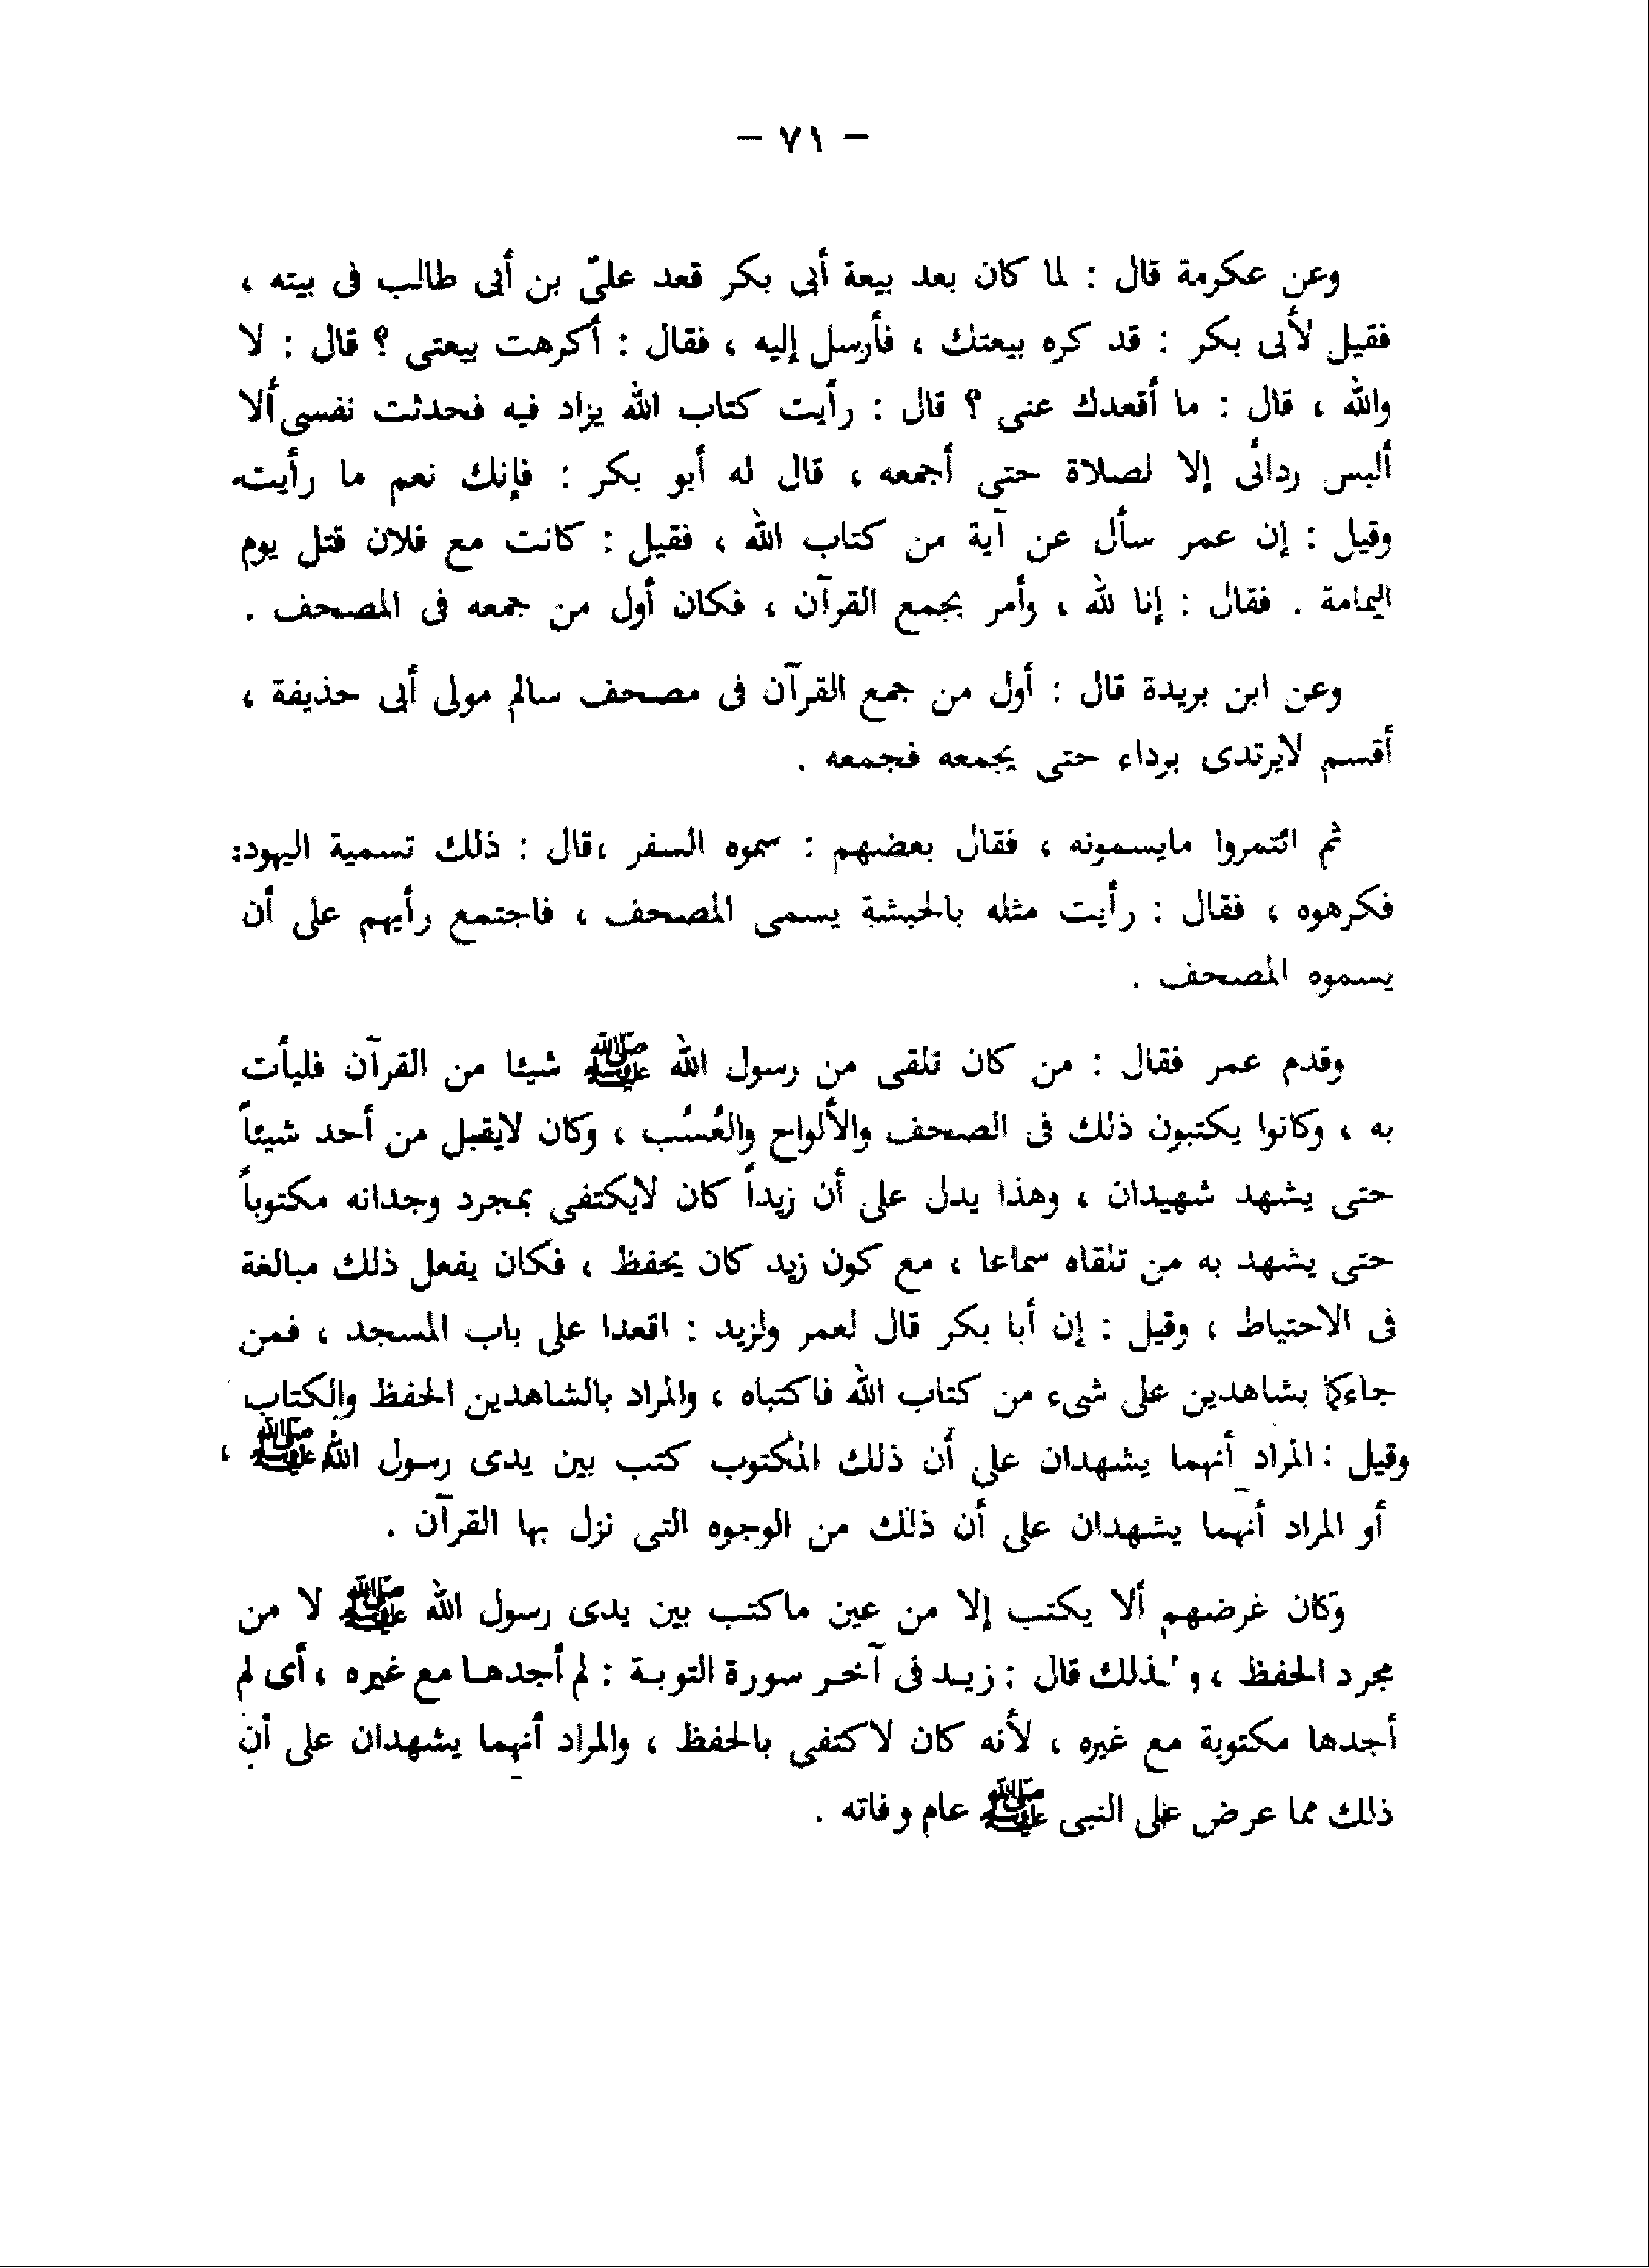 - ٧١ -
وعن عكرمة قال : لما كان بعد بيعة أبى بكر قعد علىّ بن أبى طالب فى بيته ،
فقيل لأبى بكر : قد كره بيعتك ، فأرسل إليه ، فقال : أكرهت بيعتى ؟ قال : لا
والله ، قال : ما أقعدك عنى ؟ قال : رأيت كتاب الله يزاد فيه فحدثت نفسى ألا
ألبس ردائى إلا لصلاة حتى أجمعه ، قال له أبو بكر : فإنك نعم ما رأيت.
وقيل : إن عمر سأل عن آية من كتاب الله ، فقيل : كانت مع فلان قتل يوم
اليمامة . فقال : إنا لله ، وأمر بجمع القرآن ، فكان أول من جمعه فى المصحف .
وعن ابن بريدة قال : أول من جمع القرآن فى مصحف سالم مولى أبى حذيفة ،
أقسم لايرتدى برداء حتى يجمعه فجمعه .
ثم ائتمروا مايسمونه ، فقال بعضهم : سموه السفر ،قال : ذلك تسمية اليهود:
فكرهوه ، فقال : رأيت مثله بالحبشة يسمى المصحف ، فاجتمع رأيهم على أن
يسموه المصحف .
وقدم عمر فقال : من كان تلقى من رسول الله ﷺ شيئا من القرآن فليأت
به ، وكانوا يكتبون ذلك فى الصحف والألواح والعُسُب ، وكان لايقبل من أحد شيئاً
حتى يشهد شهيدان ، وهذا يدل على أن زيداً كان لايكتفى بمجرد وجدانه مكتوباً
حتى يشهد به من تلقاه سماعا ، مع كون زيد كان يحفظ ، فكان يفعل ذلك مبالغة
فى الاحتياط ، وقيل : إن أبا بكر قال لعمر ولزيد : اقعدا على باب المسجد ، فمن
جاءكما بشاهدين على شىء من كتاب الله فاكتباه ، والمراد بالشاهدين الحفظ والكتاب
وقيل : المراد أنهما يشهدان على أن ذلك المكتوب كتب بين يدى رسول الله ﷺ ،
أو المراد أنهما يشهدان على أن ذلك من الوجوه التى نزل بها القرآن .
وكان غرضهم ألا يكتب إلا من عين ماكتب بين يدى رسول الله ﷺ لا من
مجرد الحفظ ، ولذلك قال : زيد فى آخر سورة التوبة : لم أجدها مع غيره ، أى لم
أجدها مكتوبة مع غيره ، لأنه كان لاكتفى بالحفظ ، والمراد أنهما يشهدان على أن
ذلك مما عرض على النبى ﷺ عام وفاته .